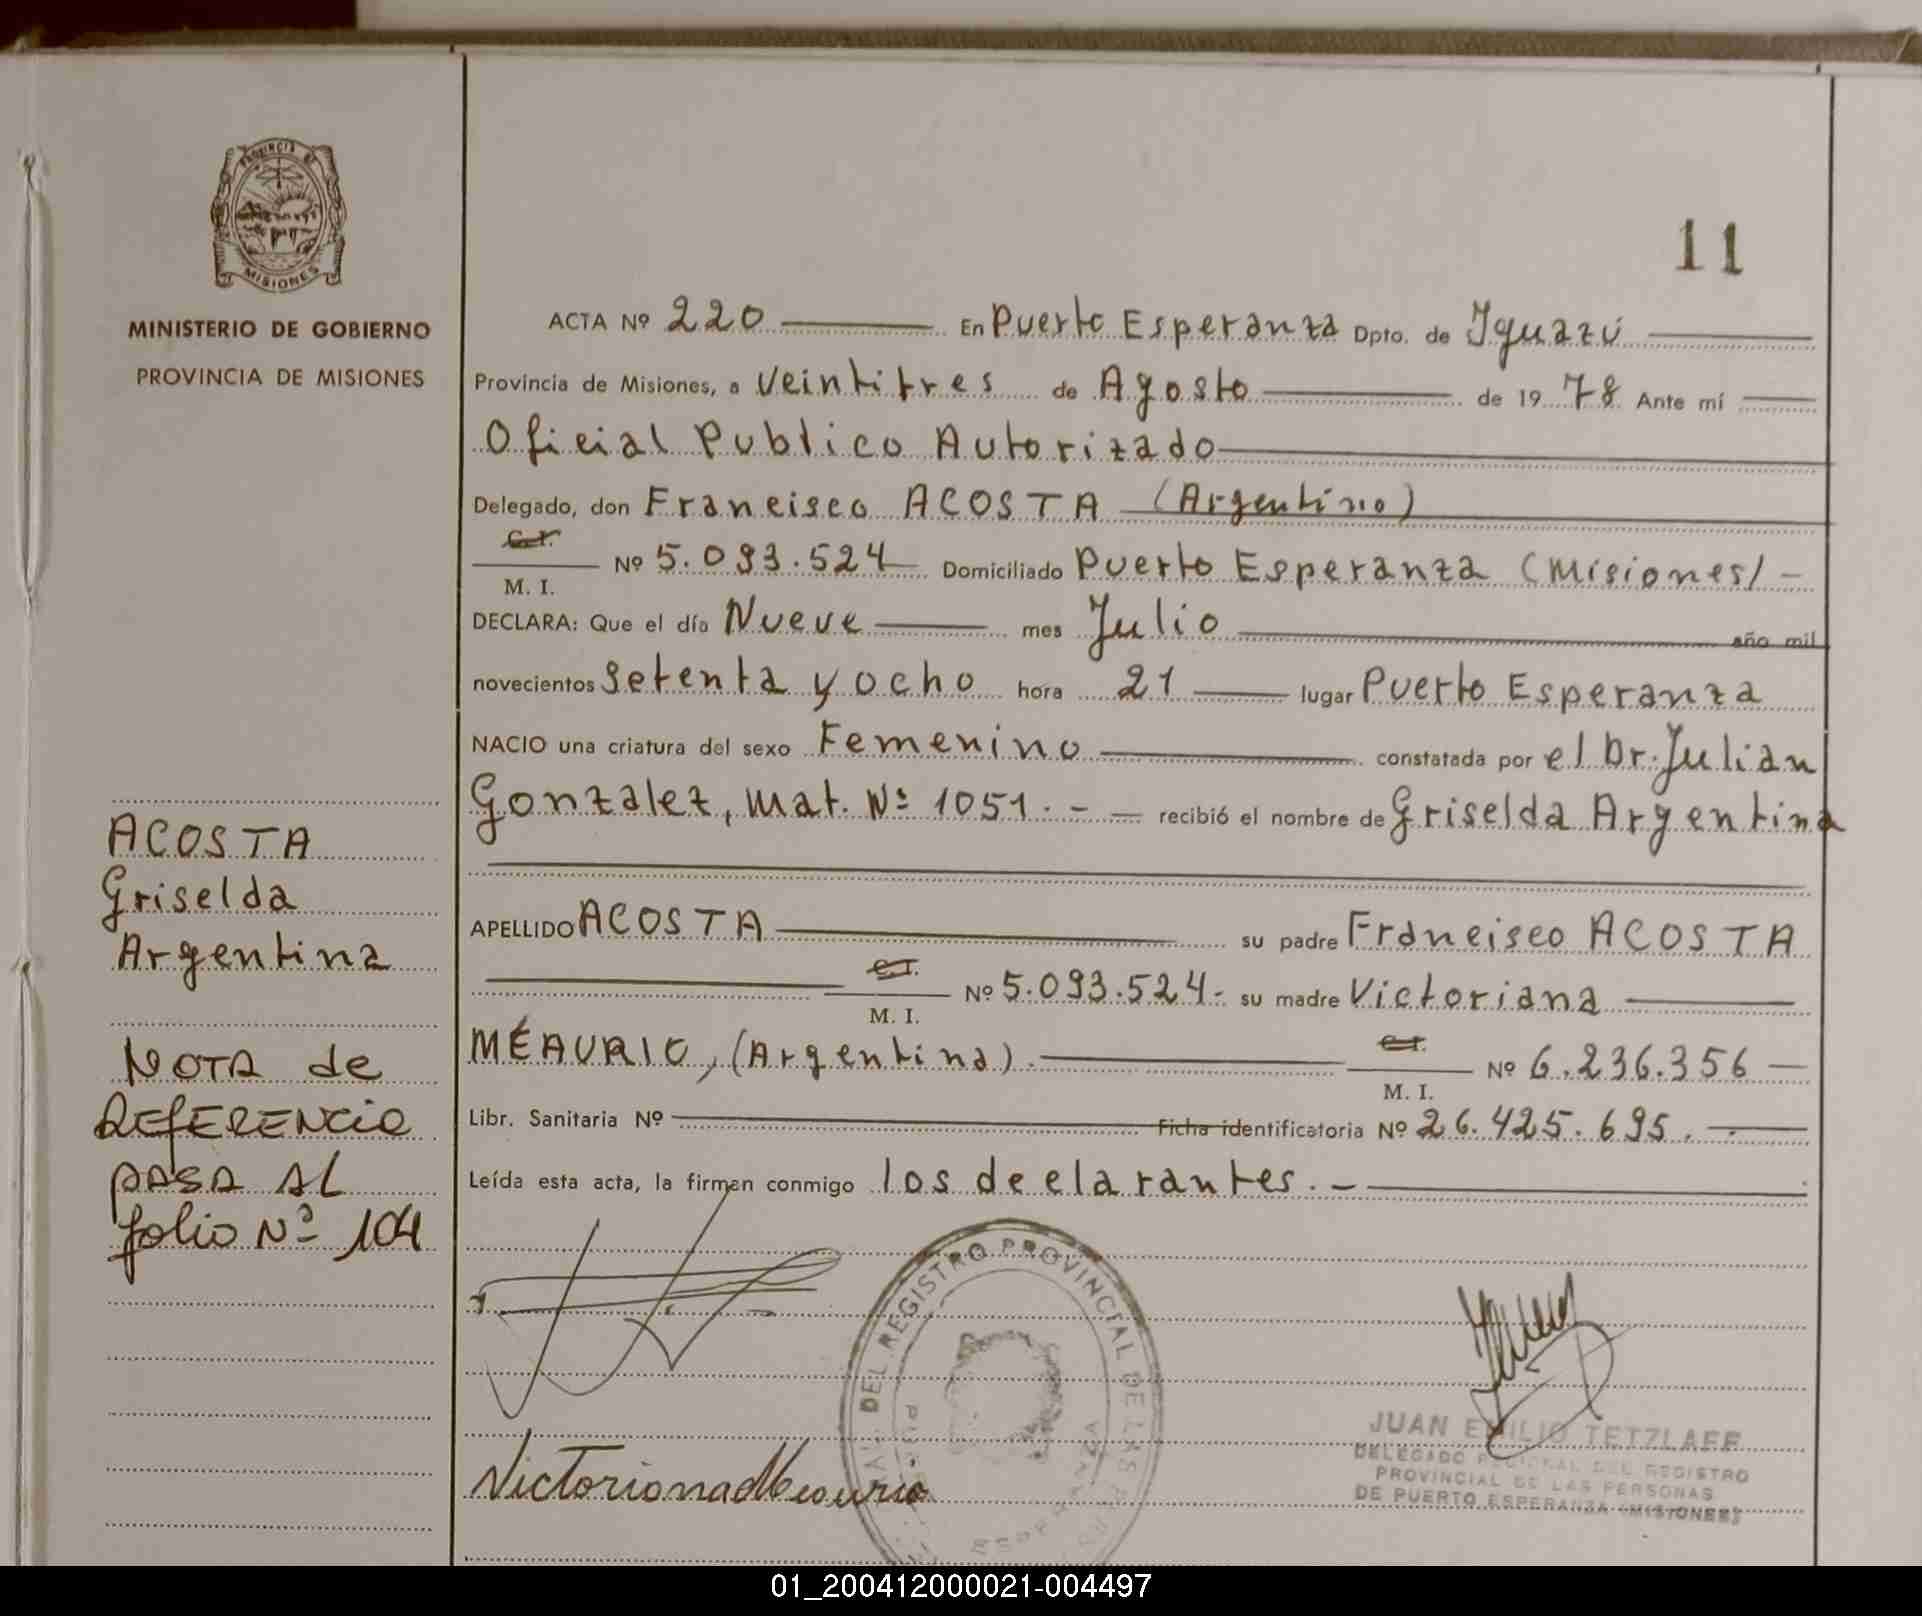 PROVINCIA DE
MISIONES
MINISTERIO DE GOBIERNO
PROVINCIA DE MISIONES
ACOSTA
Griselda
Argentina
NOTA de
REFERENCIA
PASA AL
folio Nº 104
11
ACTA Nº 220 En Puerto Esperanza Dpto. de Iguazú
Provincia de Misiones, a veintitres de Agosto de 1978 Ante mí
Oficial Publico Autorizado
Delegado, don Francisco ACOSTA (Argentino)
C.I.
M. I. Nº 5.093.524 Domiciliado Puerto Esperanza (Misiones) -
DECLARA: Que el día Nueve mes Julio año mil
novecientos setenta y ocho hora 21 lugar Puerto Esperanza
NACIO una criatura del sexo Femenino constatada por el Dr. Julian
Gonzalez, Mat. Nº 1051. - recibió el nombre de Griselda Argentina
APELLIDO ACOSTA su padre Francisco ACOSTA
C.I.
M. I. Nº 5.093.524.- su madre Victoriana
MEAURIO, (Argentina). C.I.
M. I. Nº 6.236.356
Libr. Sanitaria Nº Ficha identificatoria Nº 26.425.695. -
Leída esta acta, la firman conmigo los declarantes. -
DEL REGISTRO PROVINCIAL DE LAS
ESPERANZA
Victoriana Meaurio
JUAN EMILIO TETZLAFF
DELEGADO REGIONAL DEL REGISTRO
PROVINCIAL DE LAS PERSONAS
DE PUERTO ESPERANZA (MISIONES)
01_200412000021-004497